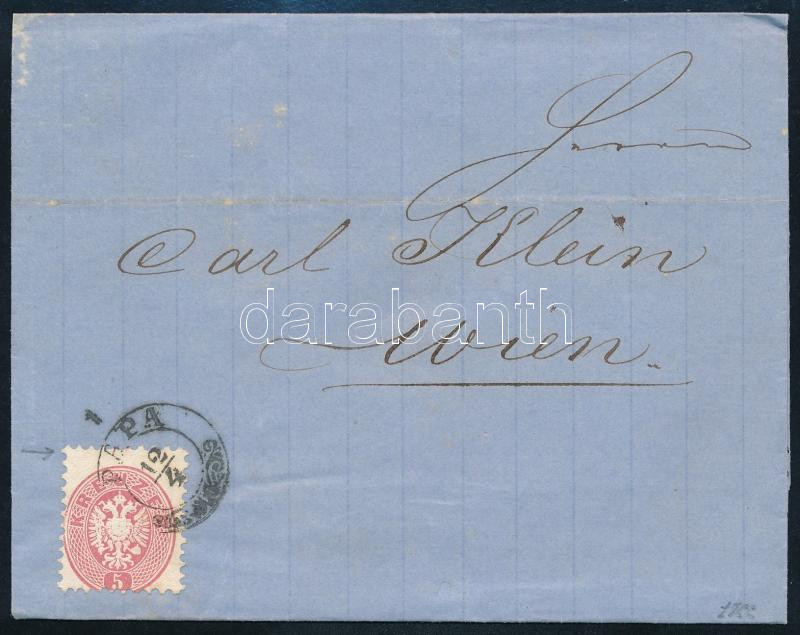 Herrn
Carl Klein
Wien.
darabanth
PAPA
12/4
KREUZER
5